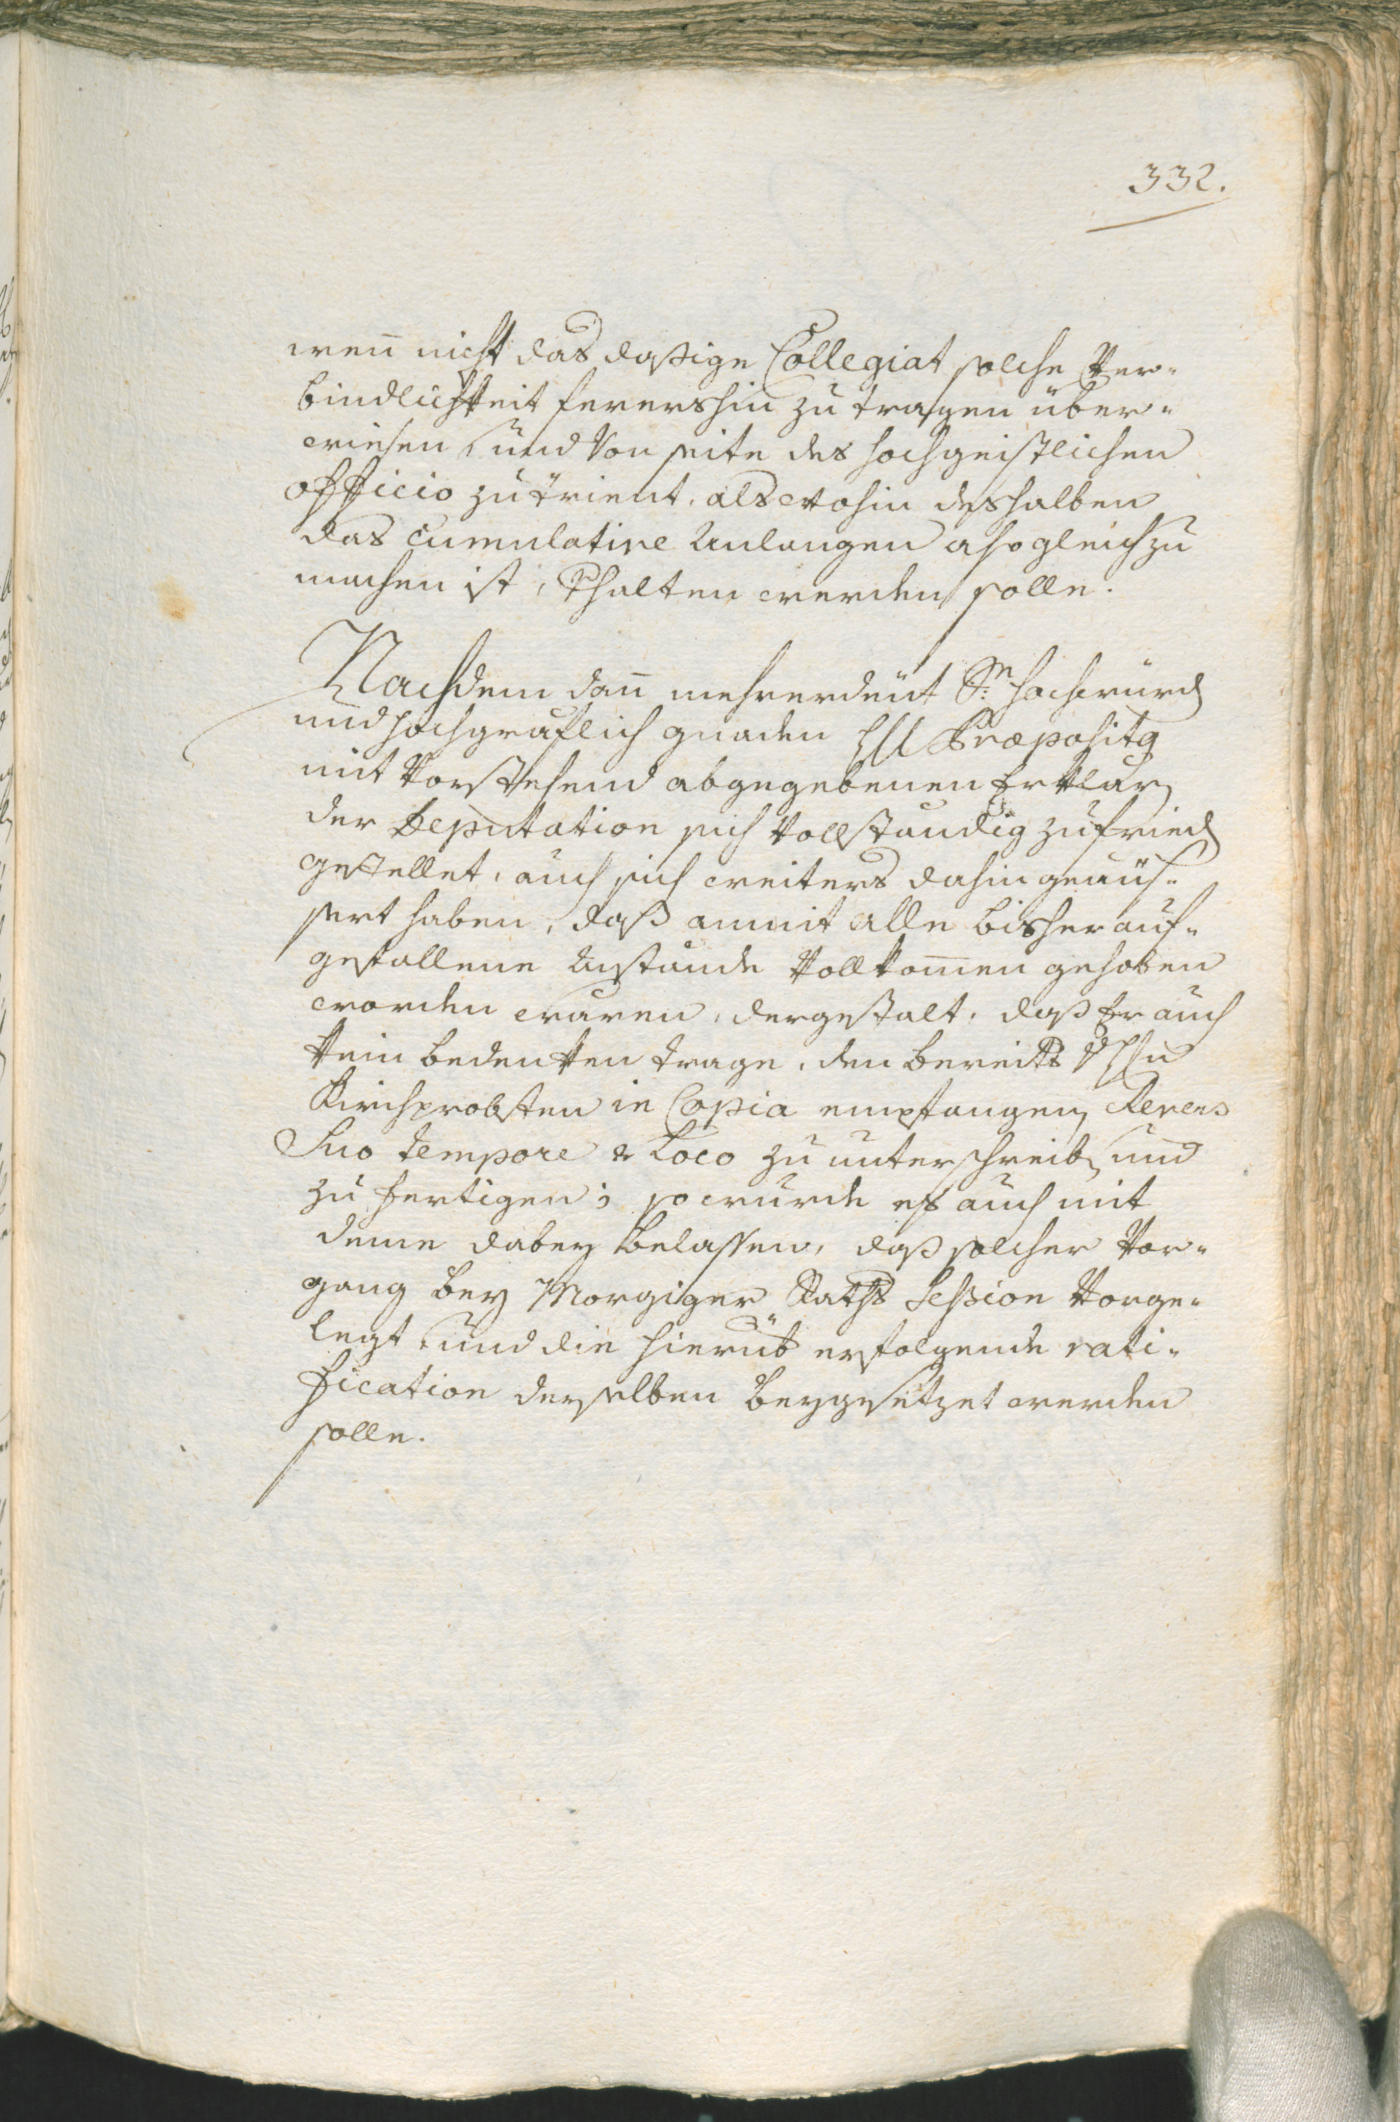 332.
wen̄ nicht das dasige Collegiat solche Ver-
bindlichkeit fernershin zu tragen über-
wiesen und von seite des hochgeistlichen
officio zu Trient, als wohin deshalben
das cumulative Anlangen asogleich zu
machen ist, Erhalten werden solle.
Nachdem dan̄ mehrerdeut Sr. hochwürd
und hochgräflich gnaden H Præposity
mit vorstehend abgegebenen Erklär
der Deputation sich vollständig zufried
gestellet, auch sich weiters dahin geäus-
sert haben, daß anmit alle bisher auf-
gefallene Anstände vollkom̄en gehoben
worden wären, dergestalt, daß Er auch
kein bedenken trage, den bereits
Kirchprobsten in Copia empfangen Revers
Suo tempore & Loco zu unterschreib und
zu fertigen; so wurde es auch mit
deme dabey belassen, daß solcher Vor-
gang bey Morgiger Raths Session vorge-
legt und die hierüb erfolgende rati-
fication derselben beygesetzet werden
solle.